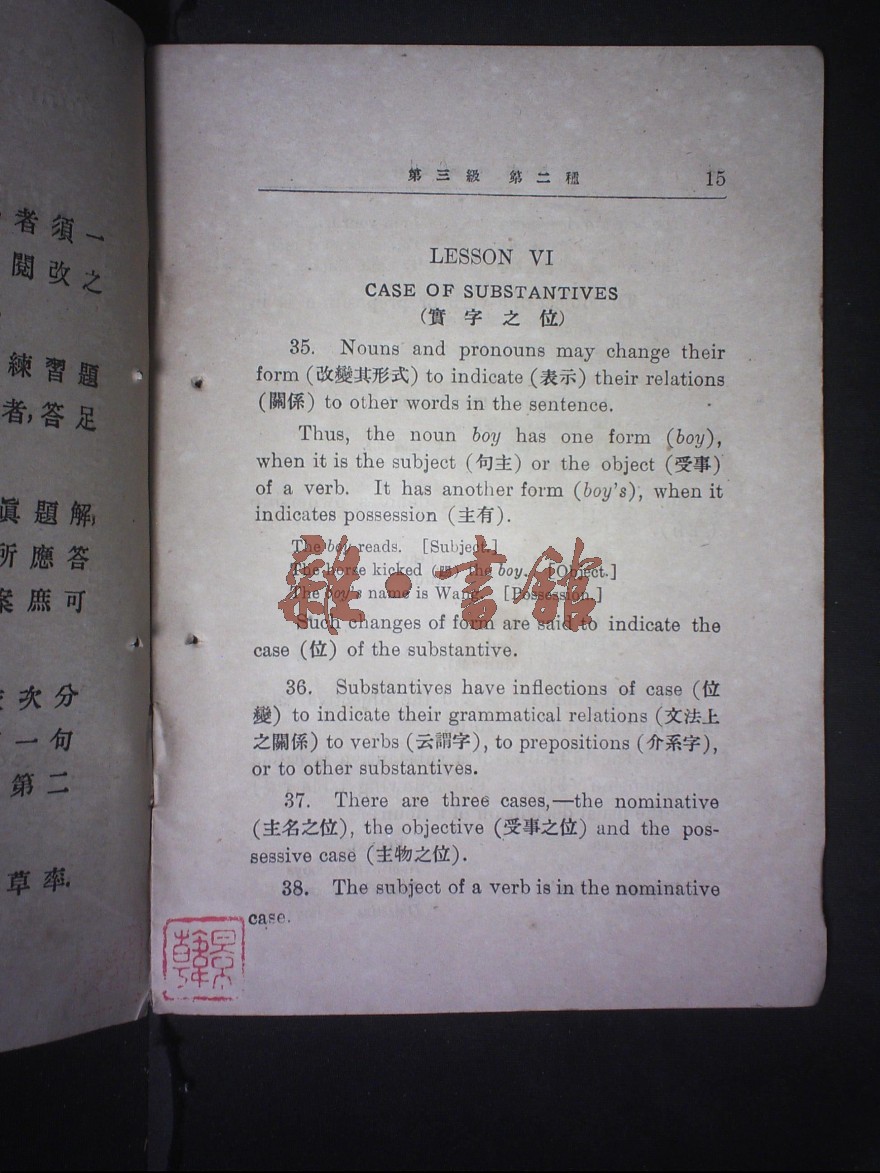 者須一
閱改之
練習題
者,答足
眞題解,
所應答
案庶可
次分
一句
第二
草率.
第三級 第二種 15
LESSON VI
CASE OF SUBSTANTIVES
(實字之位)
35. Nouns and pronouns may change their
form (改變其形式) to indicate (表示) their relations
(關係) to other words in the sentence.
Thus, the noun boy has one form (boy),
when it is the subject (句主) or the object (受事)
of a verb. It has another form (boy's), when it
indicates possession (主有).
The boy reads. [Subject.]
The horse kicked (踢) the boy. [Object.]
The boy's name is Wang. [Possession.]
Such changes of form are said to indicate the
case (位) of the substantive.
36. Substantives have inflections of case (位
變) to indicate their grammatical relations (文法上
之關係) to verbs (云謂字), to prepositions (介系字),
or to other substantives.
37. There are three cases,—the nominative
(主名之位), the objective (受事之位) and the pos-
sessive case (主物之位).
38. The subject of a verb is in the nominative
case.
雜·書館